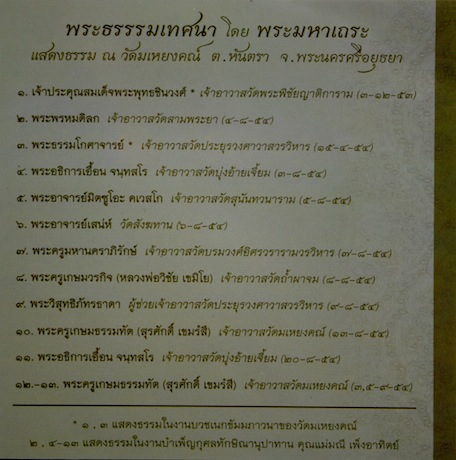 พระธรรรมเทศนา โดย พระมหาเถระ
แสดงธรรม ณ วัดมเหยงคณ์ ต.หันตรา จ.พระนครศรีอยุธยา
๑. เจ้าประคุณสมเด็จพระพุทธชินวงศ์ * เจ้าอาวาสวัดพระพิชัยญาติการาม (๓-๑๒-๕๓)
๒. พระพรหมดิลก เจ้าอาวาสวัดสามพระยา (๔-๘-๕๔)
๓. พระธรรมโกศาจารย์ * เจ้าอาวาสวัดประยุรวงศาวาสวรวิหาร (๑๕-๔-๕๔)
๔. พระอธิการเอื้อน จนฺทสโร เจ้าอาวาสวัดบุ่งอ้ายเจี้ยม (๓-๘-๕๔)
๕. พระอาจารย์มิตซูโอะ คเวสโก เจ้าอาวาสวัดสุนันทวนาราม (๕-๘-๕๔)
๖. พระอาจารย์เสน่ห์ วัดสังฆทาน (๖-๘-๕๔)
๗. พระครูมหานคราภิรักษ์ เจ้าอาวาสวัดบรมวงศ์อิศรวรารามวรวิหาร (๗-๘-๕๔)
๘. พระครูเกษมวรกิจ (หลวงพ่อวิชัย เขมิโย) เจ้าอาวาสวัดถ้ำผาจม (๘-๘-๕๔)
๙. พระวิสุทธิภัทรธาดา ผู้ช่วยเจ้าอาวาสวัดประยุรวงศาวาสวรวิหาร (๙-๘-๕๔)
๑๐. พระครูเกษมธรรมทัต (สุรศักดิ์ เขมรํสี) เจ้าอาวาสวัดมเหยงคณ์ (๑๓-๘-๕๔)
๑๑. พระอธิการเอื้อน จนฺทสโร เจ้าอาวาสวัดบุ่งอ้ายเจี้ยม (๒๐-๘-๕๔)
๑๒.-๑๓. พระครูเกษมธรรมทัต (สุรศักดิ์ เขมรํสี) เจ้าอาวาสวัดมเหยงคณ์ (๓,๕-๙-๕๔)
* ๑ , ๓ แสดงธรรมในงานบวชเนกขัมมภาวนาของวัดมเหยงคณ์
๒ , ๔-๑๓ แสดงธรรมในงานบำเพ็ญกุศลทักษิณานุปาทาน คุณแม่มณี เพ็งอาทิตย์